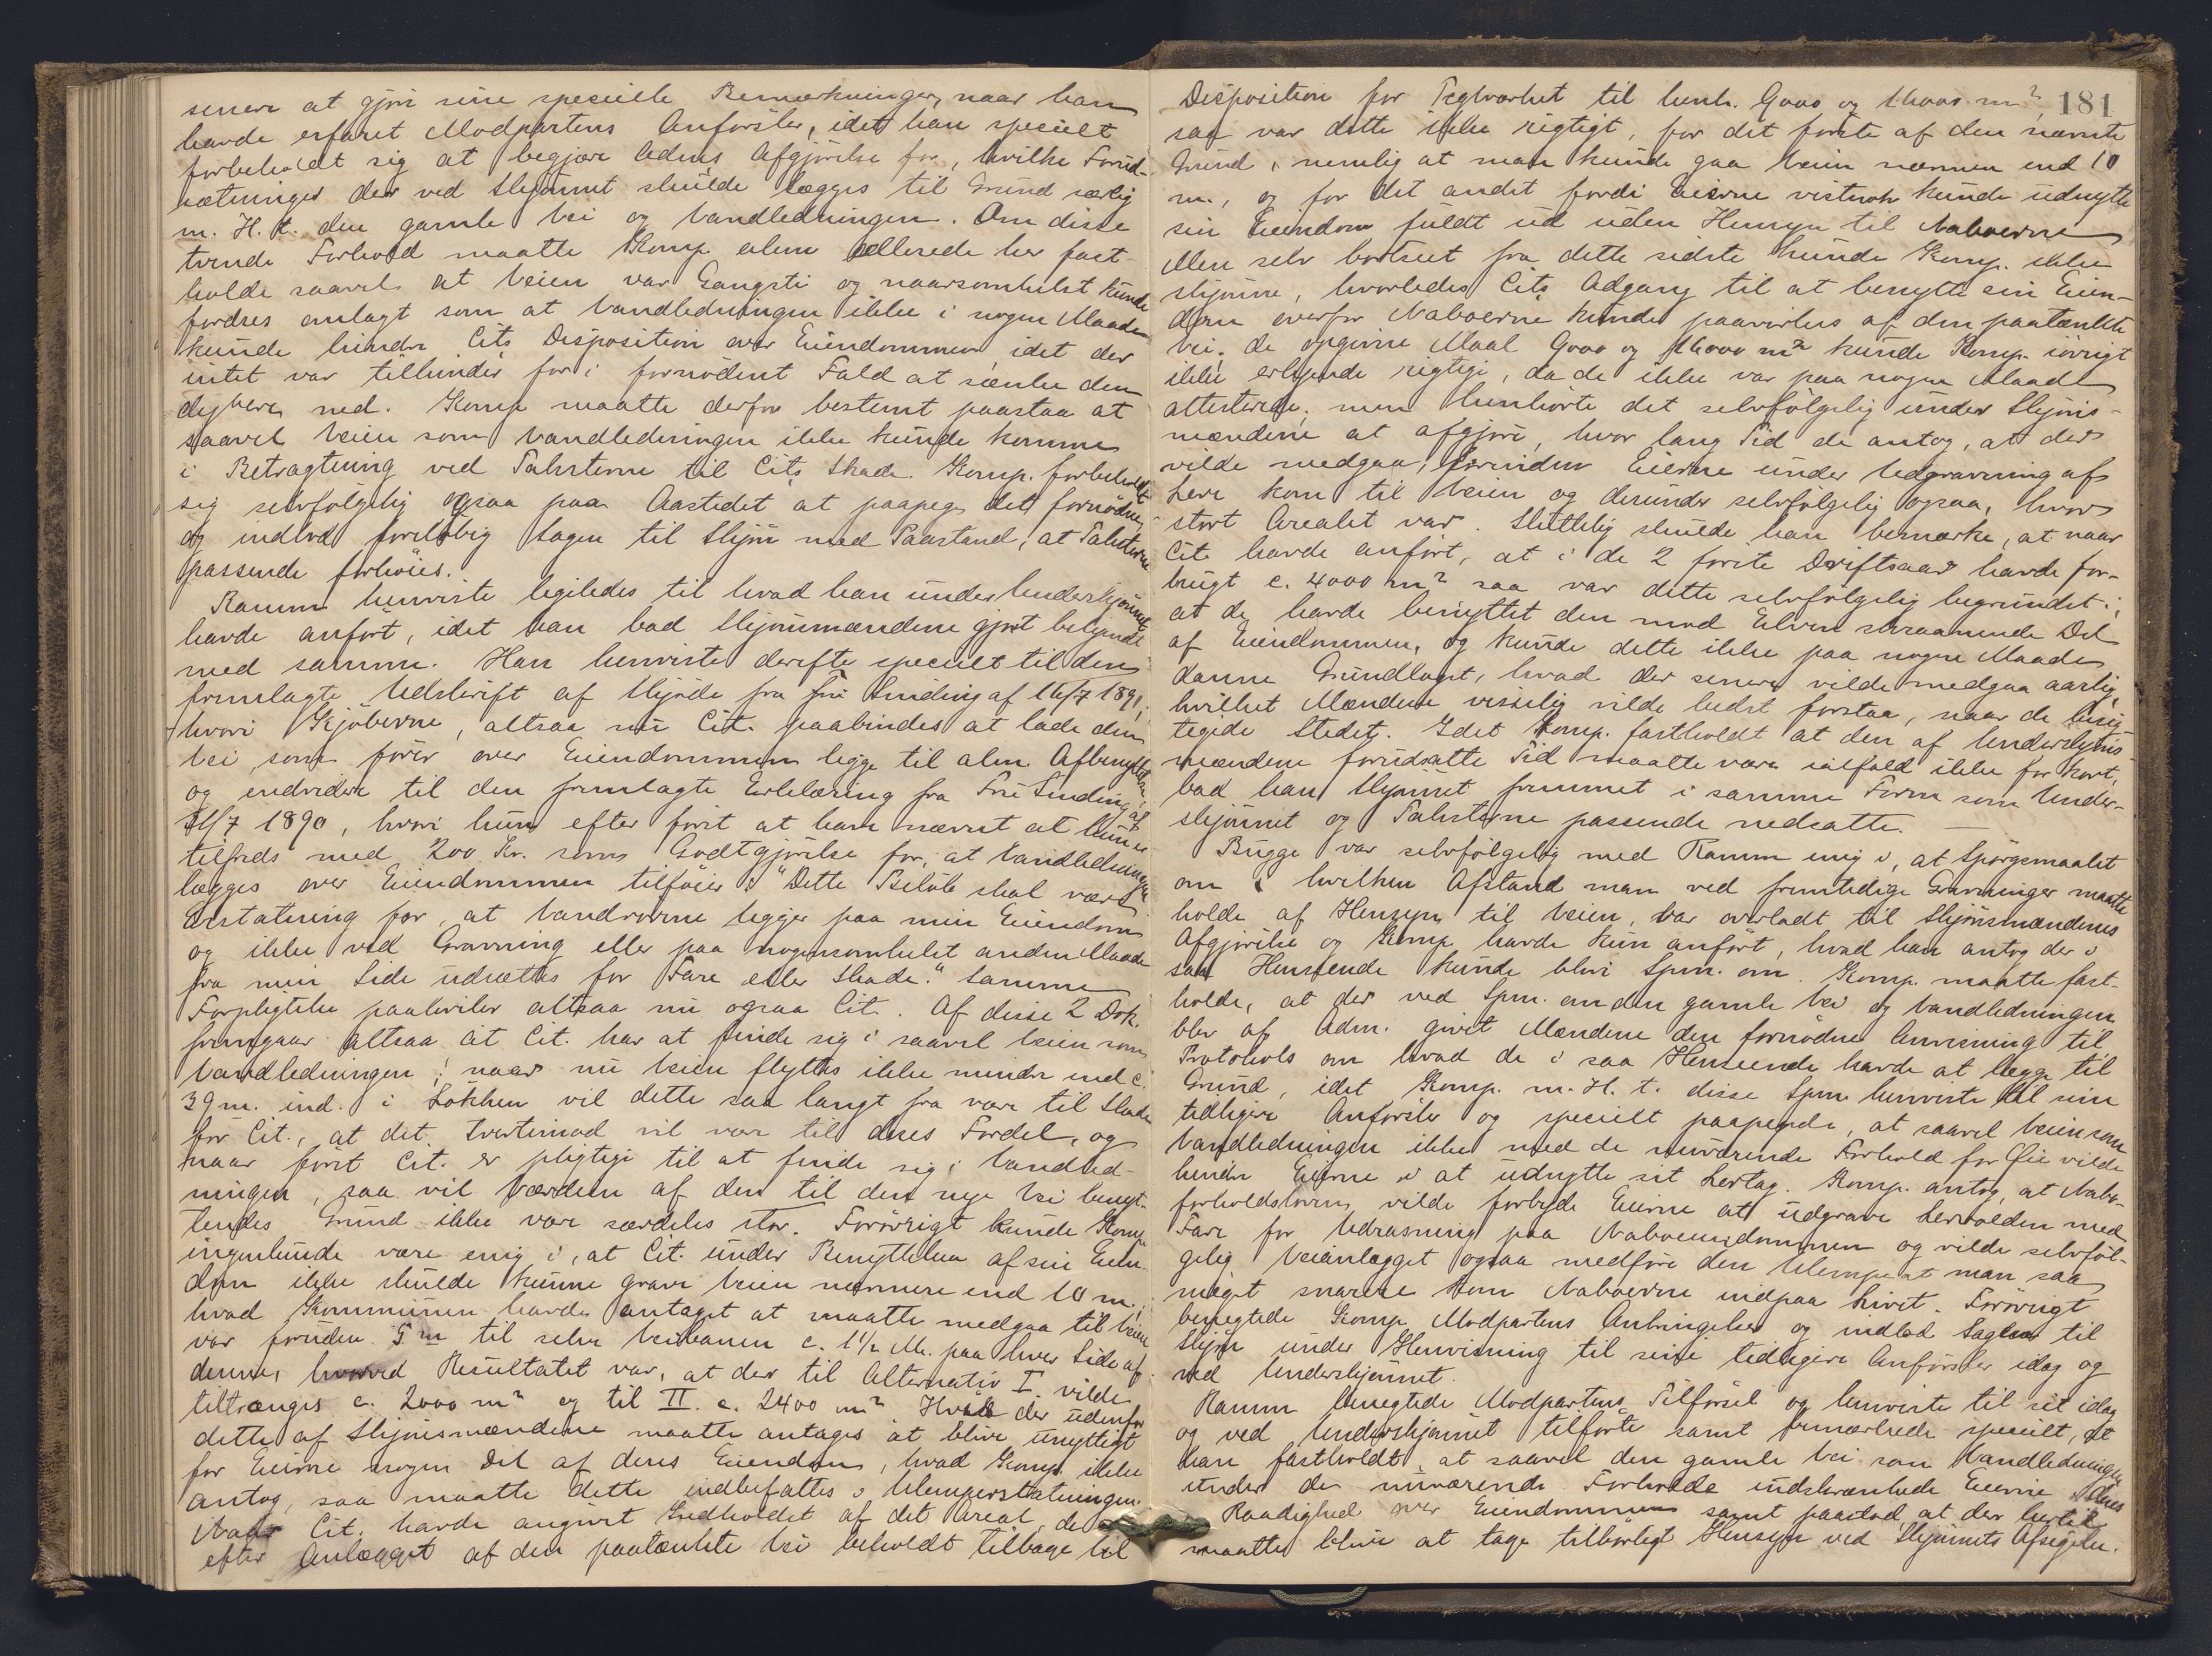 senere at gjøre sine specielle Bemærkninger, naar han
havde erfaret Modpartens Anførsler, idet han specielt
forbeholdt sig at begjære Rettens Afgjørelse for, hvilke Forud-
sætninger der ved Skjønnet skulde lægges til Grund særlig
m. H. t. den gamle Vei og Vandledningen. Om disse
tvende Forhold maatte Komp. alene allerede her fast-
holde saavel at Veien var Gangsti og naarsomhelst kunde
fordres omlagt som at Vandledningen ikke i nogen Maade
kunde hindre Cits Disposition over Eiendommen, idet der
intet var tilhinder for i fornødent Fald at sænke den
dybere ned. Komp. maatte derfor bestemt paastaa at
saavel Veien som Vandledningen ikke kunde komme
i Betragtning ved Taksterne til Cits Skade. Komp. forbeholdt
sig selvfølgelig ogsaa paa Aastedet at paapege det fornødne,
og indlod foreløbig Sagen til Skjøn med Paastand, at Taksterne
passende forhøies.
Ramm henviste ligeledes til hvad han under Underskjønnet
havde anført, idet han bad Skjønsmændene gjort bekjendt
med samme. Han henviste derefter specielt til den
fremlagte Udskrift af Skjøde fra Fru Sinding af 16/7 1891,
hvori Kjøberne, altsaa nu Cit. paabindes at lade den
Vei, som fører over Eiendommen ligge til alm. Afbenyttelse,
og endvidere til den fremlagte Erklæring fra Fru Sinding af
/7 1890, hvori hun efter først at have nævnt at hun er
tilfreds med 200 Kr. som Godtgjørelse for, at Vandledningen
lægges over Eiendommen tilføier: "Dette Beløb skal være
Erstatning for, at Vandrørene ligger paa min Eiendom
og ikke ved Gravning eller paa nogensomhelst anden Maade
fra min Side udsættes for Fare eller Skade." Samme
Forpligtelse paahviler altsaa nu ogsaa Cit. Af disse 2 Dok.
fremgaar altsaa at Cit. har at finde sig i saavel Veien som
Vandledningen; naar nu Veien flyttes ikke mindre end c.
39 m. ind i Løkken vil dette saa langt fra være til Skade
for Cit., at det tvertimod vil være til deres Fordel, og
naar først Cit. er pligtige til at finde sig i Vandled-
ningen, saa vil Værdien af den til den nye Vei benyt-
tendes Grund ikke være særdeles stor. Forøvrigt kunde Komp.
ingenlunde være enig i, at Cit. under Benyttelsen af sin Eien-
dom ikke skulde kunne grave Veien nærmere end 10 m.,
hvad Kommunen havde antaget at maatte medgaa til Veien
var foruden 5 m til selve Veibanen c. 1½ M. paa hver Side af
denne, hvorved Resultatet var, at der til Alternativ I. vilde
tiltrænges c. 2000 m² og til II. c. 2400 m² Hvis der udenfor
dette af Skjønsmændene maatte antages at blive unyttigt
for Eierne nogen Del af deres Eiendom, hvad Komp. ikke
antog, saa maatte dette indbefattes i Ulempeerstatningen.
Naar Cit. havde angivet Indholdet af det Areal, de
efter Anlægget af den paatænkte Vei beholdt tilbage til
181
Disposition for Teglværket til henh. 9000 og 16000 m²,
saa var dette ikke rigtigt, for det første af den nævnte
Grund, nemlig at man kunde gaa Veien nærmere end 10
m., og for det andet fordi Eierne vistnok kunde udnytte
sin Eiendom fuldt ud uden Hensyn til Naboerne
Men selv bortseet fra dette sidste kunde Komp. ikke
skjønne, hvorledes Cits Adgang til at benytte sin Eien-
dom overfor Naboerne kunde paavirkes af den paatænkte
Vei; de opgivne Maal 9000 og 16000 m² kunde Komp. iøvrigt
ikke erkjende rigtige, da de ikke var paa nogen Maade
attesterede; men henhørte det selvfølgelig under Skjøns-
mændene at afgjøre, hvor lang Tid de antog, at der
vilde medgaa, forinden Eierne under Udgravning af
Lere kom til Veien og derunder selvfølgelig ogsaa, hvor
stort Arealet var. Sluttelig skulde han bemærke, at naar
Cit. havde anført, at i de 2 første Driftsaar havde for-
brugt c. 4000 m² saa var dette selvfølgelig begrundet i,
at de havde benyttet den mod Elven skraanende Del
af Eiendommen, og kunde dette ikke paa nogen Maade
danne Grundlaget, hvad der senere vilde medgaa aarlig,
hvilket Mændene visselig vilde bedst forstaa, naar de besig-
tigede Stedet. Idet Komp. fastholdt at den af Underskjøns-
mændene forudsatte Tid maatte være ialfald ikke for kort,
bad han Skjønnet fremmet i samme Form som Under-
skjønnet og Taksterne passende nedsatte.
Bugge var selvfølgelig med Ramm enig i, at Spørgsmaalet
om i hvilken Afstand man ved fremtidige Gravninger maatte
holde af Hensyn til Veien, var overladt til Skjønsmændenes
Afgjørelse og Komp. havde kun anført, hvad han antog der i
saa Henseende kunde blive Spm. om. Komp. maatte fast-
holde, at der ved Spm. om den gamle Vei og Vandledningen
blev af Adm. givet Mændene den fornødne Anvisning til
Protokols om hvad de i saa Henseende havde at lægge til
Grund, idet Komp. m. H. t. disse Spm. henviste til sine
tidligere Anførsler og specielt paapegede, at saavel Veien som
Vandledningen ikke med de nuværende Forhold for Øie vilde
hindre Eierne i at udnytte sit Lertag. Komp. antog, at Nabo-
forholdsloven vilde forbyde Eierne at udgrave Lervolden med
Fare for Udrasning paa Naboeiendommen og vilde selvføl-
gelig Veianlægget ogsaa medføre den Ulempe at man saa
meget snarere kom Naboerne indpaa Livet. Forøvrigt
benegtede Komp. Modpartens Anbringelser og indlod Sagen til
Skjøn under Henvisning til sine tidligere Anførsler idag og
ved Underskjønnet.
Ramm benegtede Modpartens Tilførsel og henviste til sit idag
og ved Underskjønnet tilførte samt bemærkede specielt, at
han fastholdt, at saavel den gamle Vei som Vandledningen
under de nuværende Forholde indskrænkede Eierne i deres
Raadighed over Eiendommen samt paastod at der hertil
maatte blive at tage tilbørligt Hensyn ved Skjønnets Afsigelse.